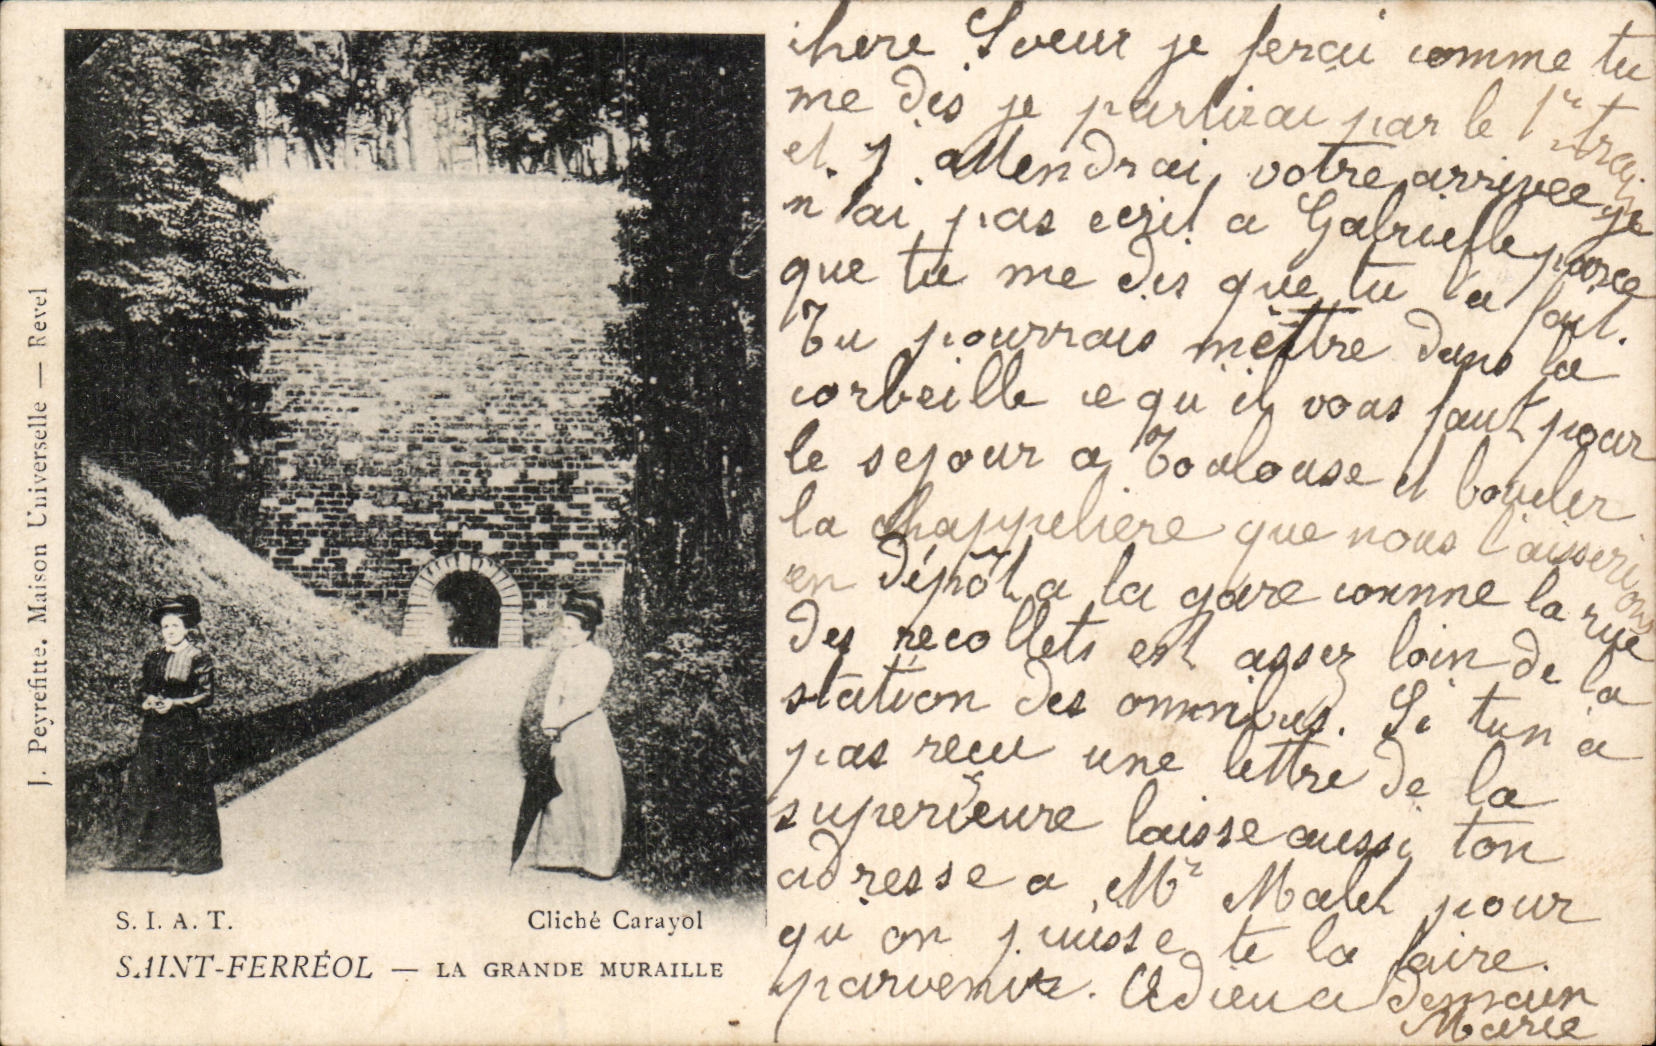 J. Peyrefitte. Maison Universelle — Revel
S. I. A. T.
Cliché Carayol
SAINT-FERRÉOL — LA GRANDE MURAILLE
chere Soeur je ferai comme tu
me dis je partirai par le 1er train
et j attendrai votre arrivee je
n ai pas ecrit a Gabrielle parce
que tu me dis que tu l a fait.
Tu pourrais mettre dans la
corbeille ce qu'il vous faut pour
le sejour a Toulouse et boucler
la chappeliere que nous laisserions
en dépôt a la gare comme la rue
des recollets est assez loin de la
station des omnibus. Si tu n a
pas recu une lettre de la
superieure laisse aussi ton
adresse a Mr Malet pour
qu on puisse te la faire.
parvenir. Adieu a demain
Marie